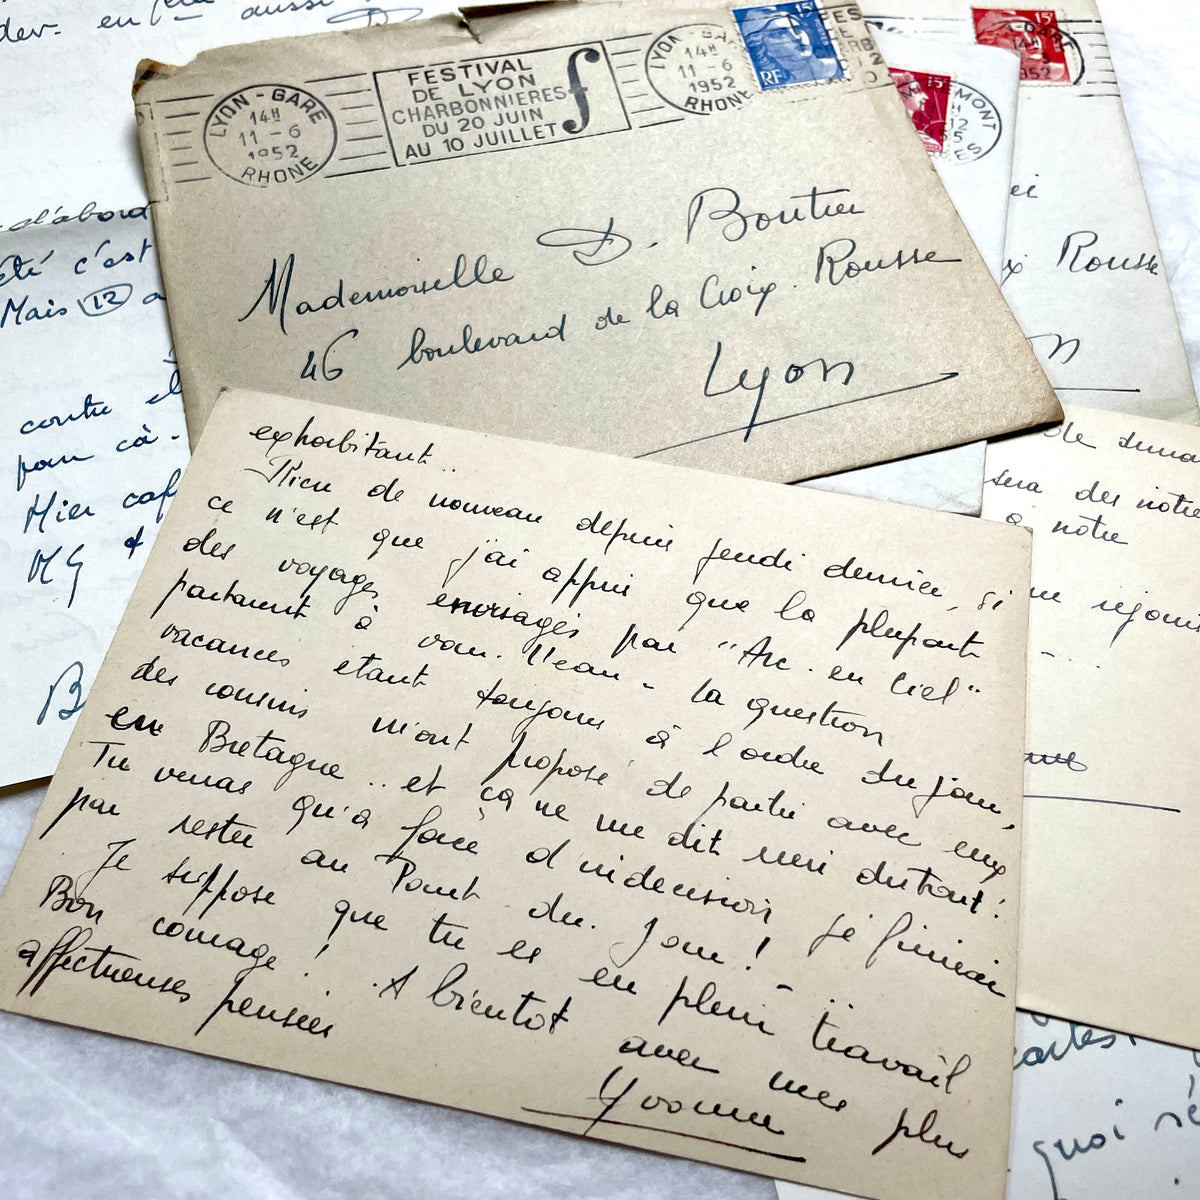 dev. en
aussi
LYON - GARE
14H
11 - 6
1952
RHONE
FESTIVAL
DE LYON
CHARBONNIERES
DU 20 JUIN
AU 10 JUILLET
f
LYON - GARE
14H
11 - 6
1952
RHONE
15F
RF
15F
15F
14H
1952
Mademoiselle D. Boutier
46 boulevard de la Croix Rousse
Lyon
Rousse
d'abord
été c'est
Mais 12 a
contre
pour çà -
Hier
MG
B
exhorbitant..
Rien de nouveau depuis jeudi dernier, si
ce n'est que j'ai appris que la plupart
des voyages envisagés par "Arc. en Ciel"
partaient à l'eau - la question
vacances étant toujours à l'ordre du jour,
des cousins m'ont proposé de partir avec eux
en Bretagne.. et ça ne me dit rien du tout!
Tu verras qu'à force d'indécision je finirai
par rester au Point du. Jour!
Je suppose que tu es en plein travail
Bon courage! A bientôt avec mes plus
affectueuses pensées
Yvonne
de
sera des notre
à notre
cartes.
quoi